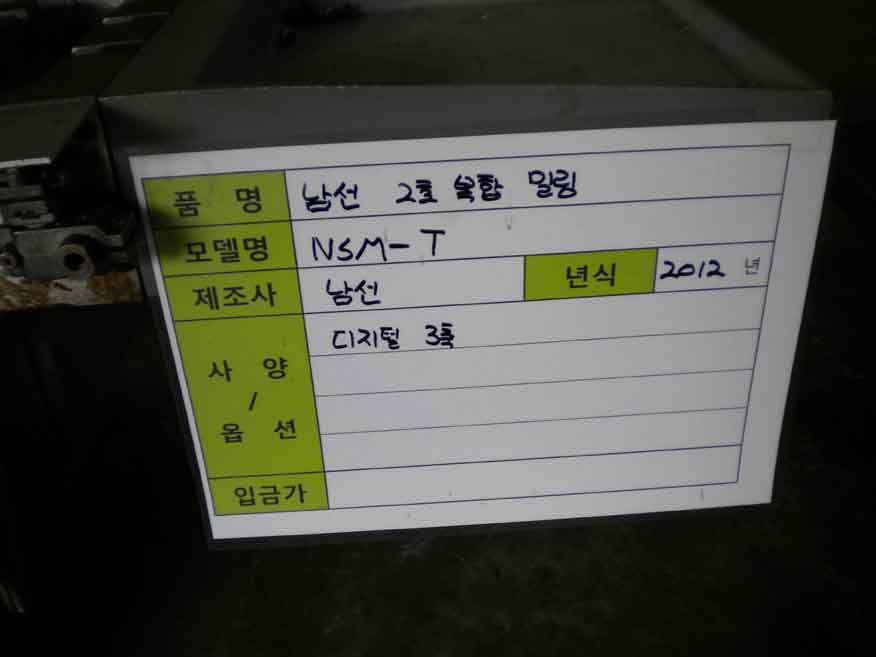 품 명 남선 2호 복합 밀링
모델명 NSM-T
제조사 남선 년식 2012 년
사 양 / 옵 션 디지털 3축
입금가